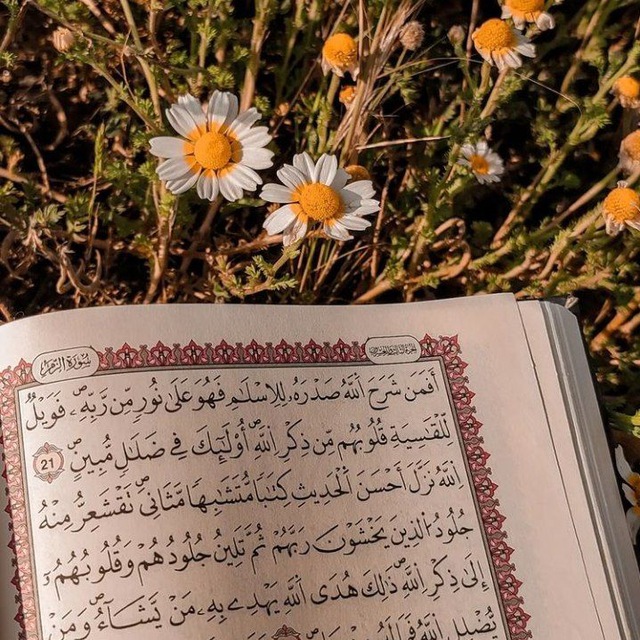 سُورَةُ الزُّمَرِ
الجزء الثالث والعشرون
أَفَمَن شَرَحَ ٱللَّهُ صَدْرَهُۥ لِلْإِسْلَٰمِ فَهُوَ عَلَىٰ نُورٍ مِّن رَّبِّهِۦ ۚ فَوَيْلٌ
لِّلْقَٰسِيَةِ قُلُوبُهُم مِّن ذِكْرِ ٱللَّهِ ۚ أُو۟لَٰٓئِكَ فِى ضَلَٰلٍ مُّبِينٍ 21
ٱللَّهُ نَزَّلَ أَحْسَنَ ٱلْحَدِيثِ كِتَٰبًا مُّتَشَٰبِهًا مَّثَانِىَ تَقْشَعِرُّ مِنْهُ
جُلُودُ ٱلَّذِينَ يَخْشَوْنَ رَبَّهُمْ ثُمَّ تَلِينُ جُلُودُهُمْ وَقُلُوبُهُمْ
إِلَىٰ ذِكْرِ ٱللَّهِ ۚ ذَٰلِكَ هُدَى ٱللَّهِ يَهْدِى بِهِۦ مَن يَشَآءُ ۚ وَمَن
يُضْلِلِ ٱللَّهُ فَمَا لَهُۥ